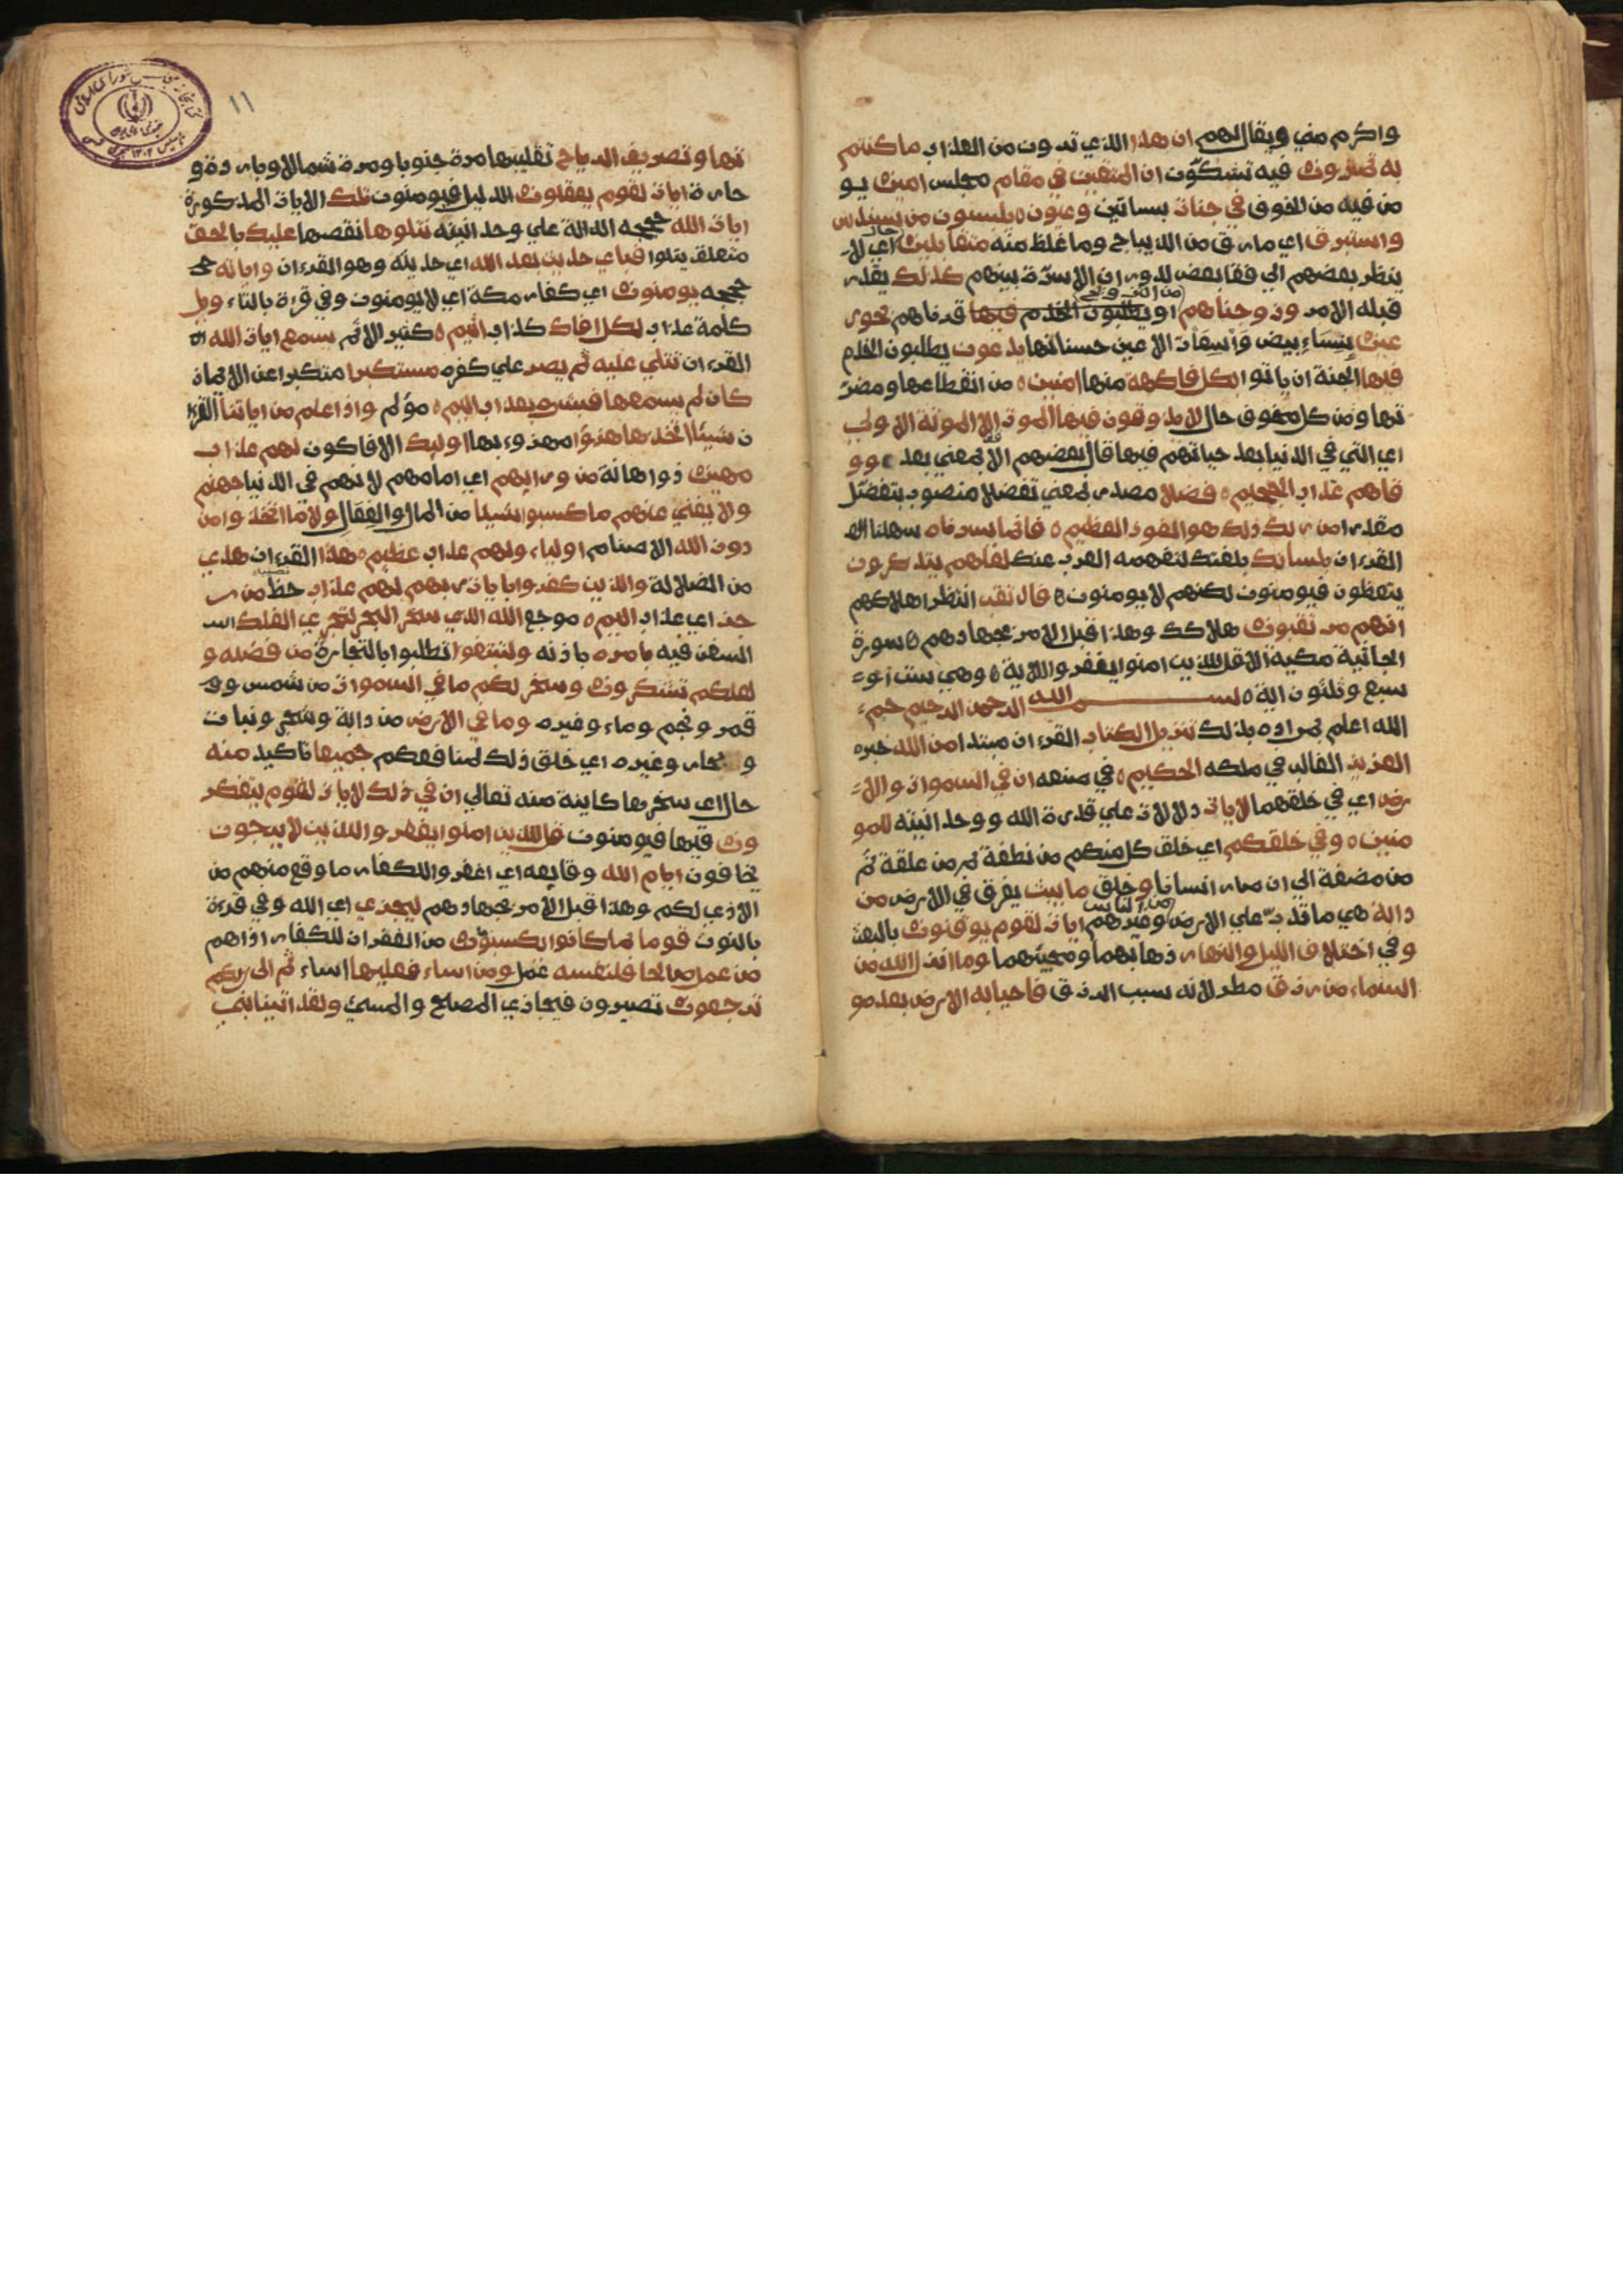 واكرم مني ويقال لهم ان هذا الذي ترون من العذاب ما كنتم
به تمترون فيه تشكون ان المتقين في مقام مجلس امين يو
من فيه من الخوف في جنات بساتين وعيون يلبسون من سندس
واستبرق اي ما رق من الديباج وما غلظ منه متقابلين حال اي لا
ينظر بعضهم الي قفا بعض لدوران الاسرة بينهم كذلك يقدر
قبله الامر وزوجناهم من التزويج او قرناهم بحور
عين بنساء بيض واسعات الاعين حسناتها يدعون يطلبون الخدم
فيها الجنة ان ياتوا بكل فاكهة منها امنين من انقطاعها ومضر
تها ومن كل مخوف حال لا يذوقون فيها الموت الا الموتة الاولي
اي التي في الدنيا بعد حياتهم فيها قال بعضهم الا بمعني بعد وو
قاهم عذاب الجحيم فضلا مصدر بمعني تفضلا منصوب بتفضل
مقدرا من ربك ذلك هو الفوز العظيم فانما يسرناه سهلنا
القرءان بلسانك بلغتك لتفهمه العرب عنك لعلهم يتذكرون
يتعظون فيومنون لكنهم لا يومنون فارتقب انتظر اهلاكهم
انهم مرتقبون هلاكك وهذا قبل الامر بجهادهم سورة
الجاثية مكية الا قل للذين امنوا يغفروا الاية وهي ست او
سبع وثلثون اية بسم الله الرحمن الرحيم حم
الله اعلم بمراده بذلك تنزيل الكتاب القرءان مبتدا من الله خبره
العزيز الغالب في ملكه الحكيم في صنعه ان في السموات والا
رض اي في خلقهما لايات دلالات علي قدرة الله ووحدانيته للمو
منين وفي خلقكم اي خلق كل منكم من نطفة ثم من علقة ثم
من مضغة الي ان صار انسانا وخلق ما يبث يفرق في الارض من
دابة هي ما تدب علي الارض من الناس وغيرهم ايات لقوم يوقنون بالبعث
وفي اختلاف الليل والنهار ذهابهما ومجيئهما وما انزل الله من
السماء من رزق مطر لانه سبب الرزق فاحيا به الارض بعد مو
١١
تها وتصريف الرياح تقليبها مرة جنوبا ومرة شمالا وباردة و
حارة ايات لقوم يعقلون الدليل فيومنون تلك الايات المذكورة
ايات الله حججه الدالة علي وحدانيته نتلوها نقصها عليك بالحق
متعلق بنتلوا فباي حديث بعد الله اي حديثه وهو القرءان واياته
حججه يومنون اي كفار مكة اي لا يومنون وفي قرءة بالتاء ويل
كلمة عذاب لكل افاك كذاب اثيم كثير الاثم يسمع ايات الله
القرءان تتلي عليه ثم يصر علي كفره مستكبرا متكبرا عن الايمان
كان لم يسمعها فبشره بعذاب اليم مؤلم واذا علم من اياتنا القرءا
ن شيئا اتخذها هزؤا مهزوء بها اوليك الافاكون لهم عذاب
مهين ذو اهانة من ورايهم اي امامهم لانهم في الدنيا جهنم
ولا يغني عنهم ما كسبوا شيئا من المال والفعال ولا ما اتخذوا من
دون الله الاصنام اولياء ولهم عذاب عظيم هذا القرءان هدي
من الضلالة والذين كفروا بايات ربهم لهم عذاب حظ من ر
جز اي عذاب اليم موجع الله الذي سخر البحر لتجري الفلك
السفن فيه بامره باذنه ولتبتغوا تطلبوا بالتجارة من فضله و
لعلكم تشكرون وسخر لكم ما في السموات من شمس و
قمر ونجم وماء وغيره وما في الارض من دابة وشجر ونبات
وبحار وغيره اي خلق ذلك لمنافعكم جميعا تاكيد منه
حال اي سخرها كاينة منه تعالي ان في ذلك لايات لقوم يتفكر
ون فيها فيومنون قل للذين امنوا يغفروا للذين لا يرجون
يخافون ايام الله وقايعه اي اغفروا للكفار ما وقع منهم من
الاذي لكم وهذا قبل الامر بجهادهم ليجزي اي الله وفي قرءة
بالنون قوما بما كانوا يكسبون من الغفران للكفار اذاهم
من عمل صالحا فلنفسه عمل ومن اساء فعليها اساء ثم الي ربكم
ترجعون تصيرون فيجازي المصلح والمسئ ولقد اتينا بني